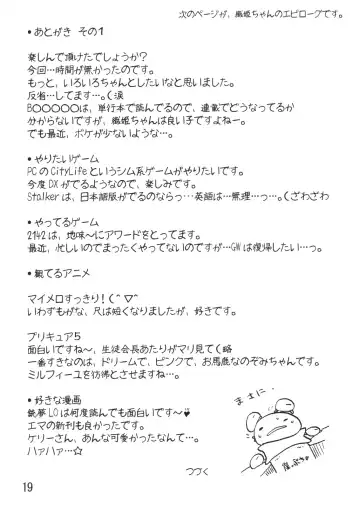 次のページが、雛姫ちゃんのエピローグです。
・あとがき その1
楽しんで頂けたでしょうか？
今回…時間が無かったのです。
もっと、いろいろちゃんとしたいなと思いました。
反省…してます。(涙
BOOOOOは、単行本で読んでるので、連載でどうなってるか
分からないですが、雛姫ちゃんは良い子ですよねー。
でも最近、ボケが少ないような…。
・やりたいゲーム
PCのCityLifeというシム系ゲームがやりたいです。
今度DXがでるようなので、楽しみです。
Stalkerは、日本語版がでるのならっ…英語は…無理…っ…。(ざわざわ
・やってるゲーム
2142は、地味〜にアワードをとってます。
最近、忙しいのでまったくやってないのですが…GWは復帰したい…っ。
・観てるアニメ
マイメロすっきり！(^▽^)
いわずもがな、尺は短くなりましたが、好きです。
プリキュア5
面白いですね〜、生徒会長あたりがマリ見て(略
一番すきなのは、ドリームで、ピンクで、お馬鹿なのぞみちゃんです。
ミルフィーユを彷彿とさせますね…。
・好きな漫画
銃夢LOは何度読んでも面白いです〜♥
エマの新刊も良かったです。
ケリーさん、あんな可愛かったなんて…。
ハァハァ…☆
つづく
まさに…
19